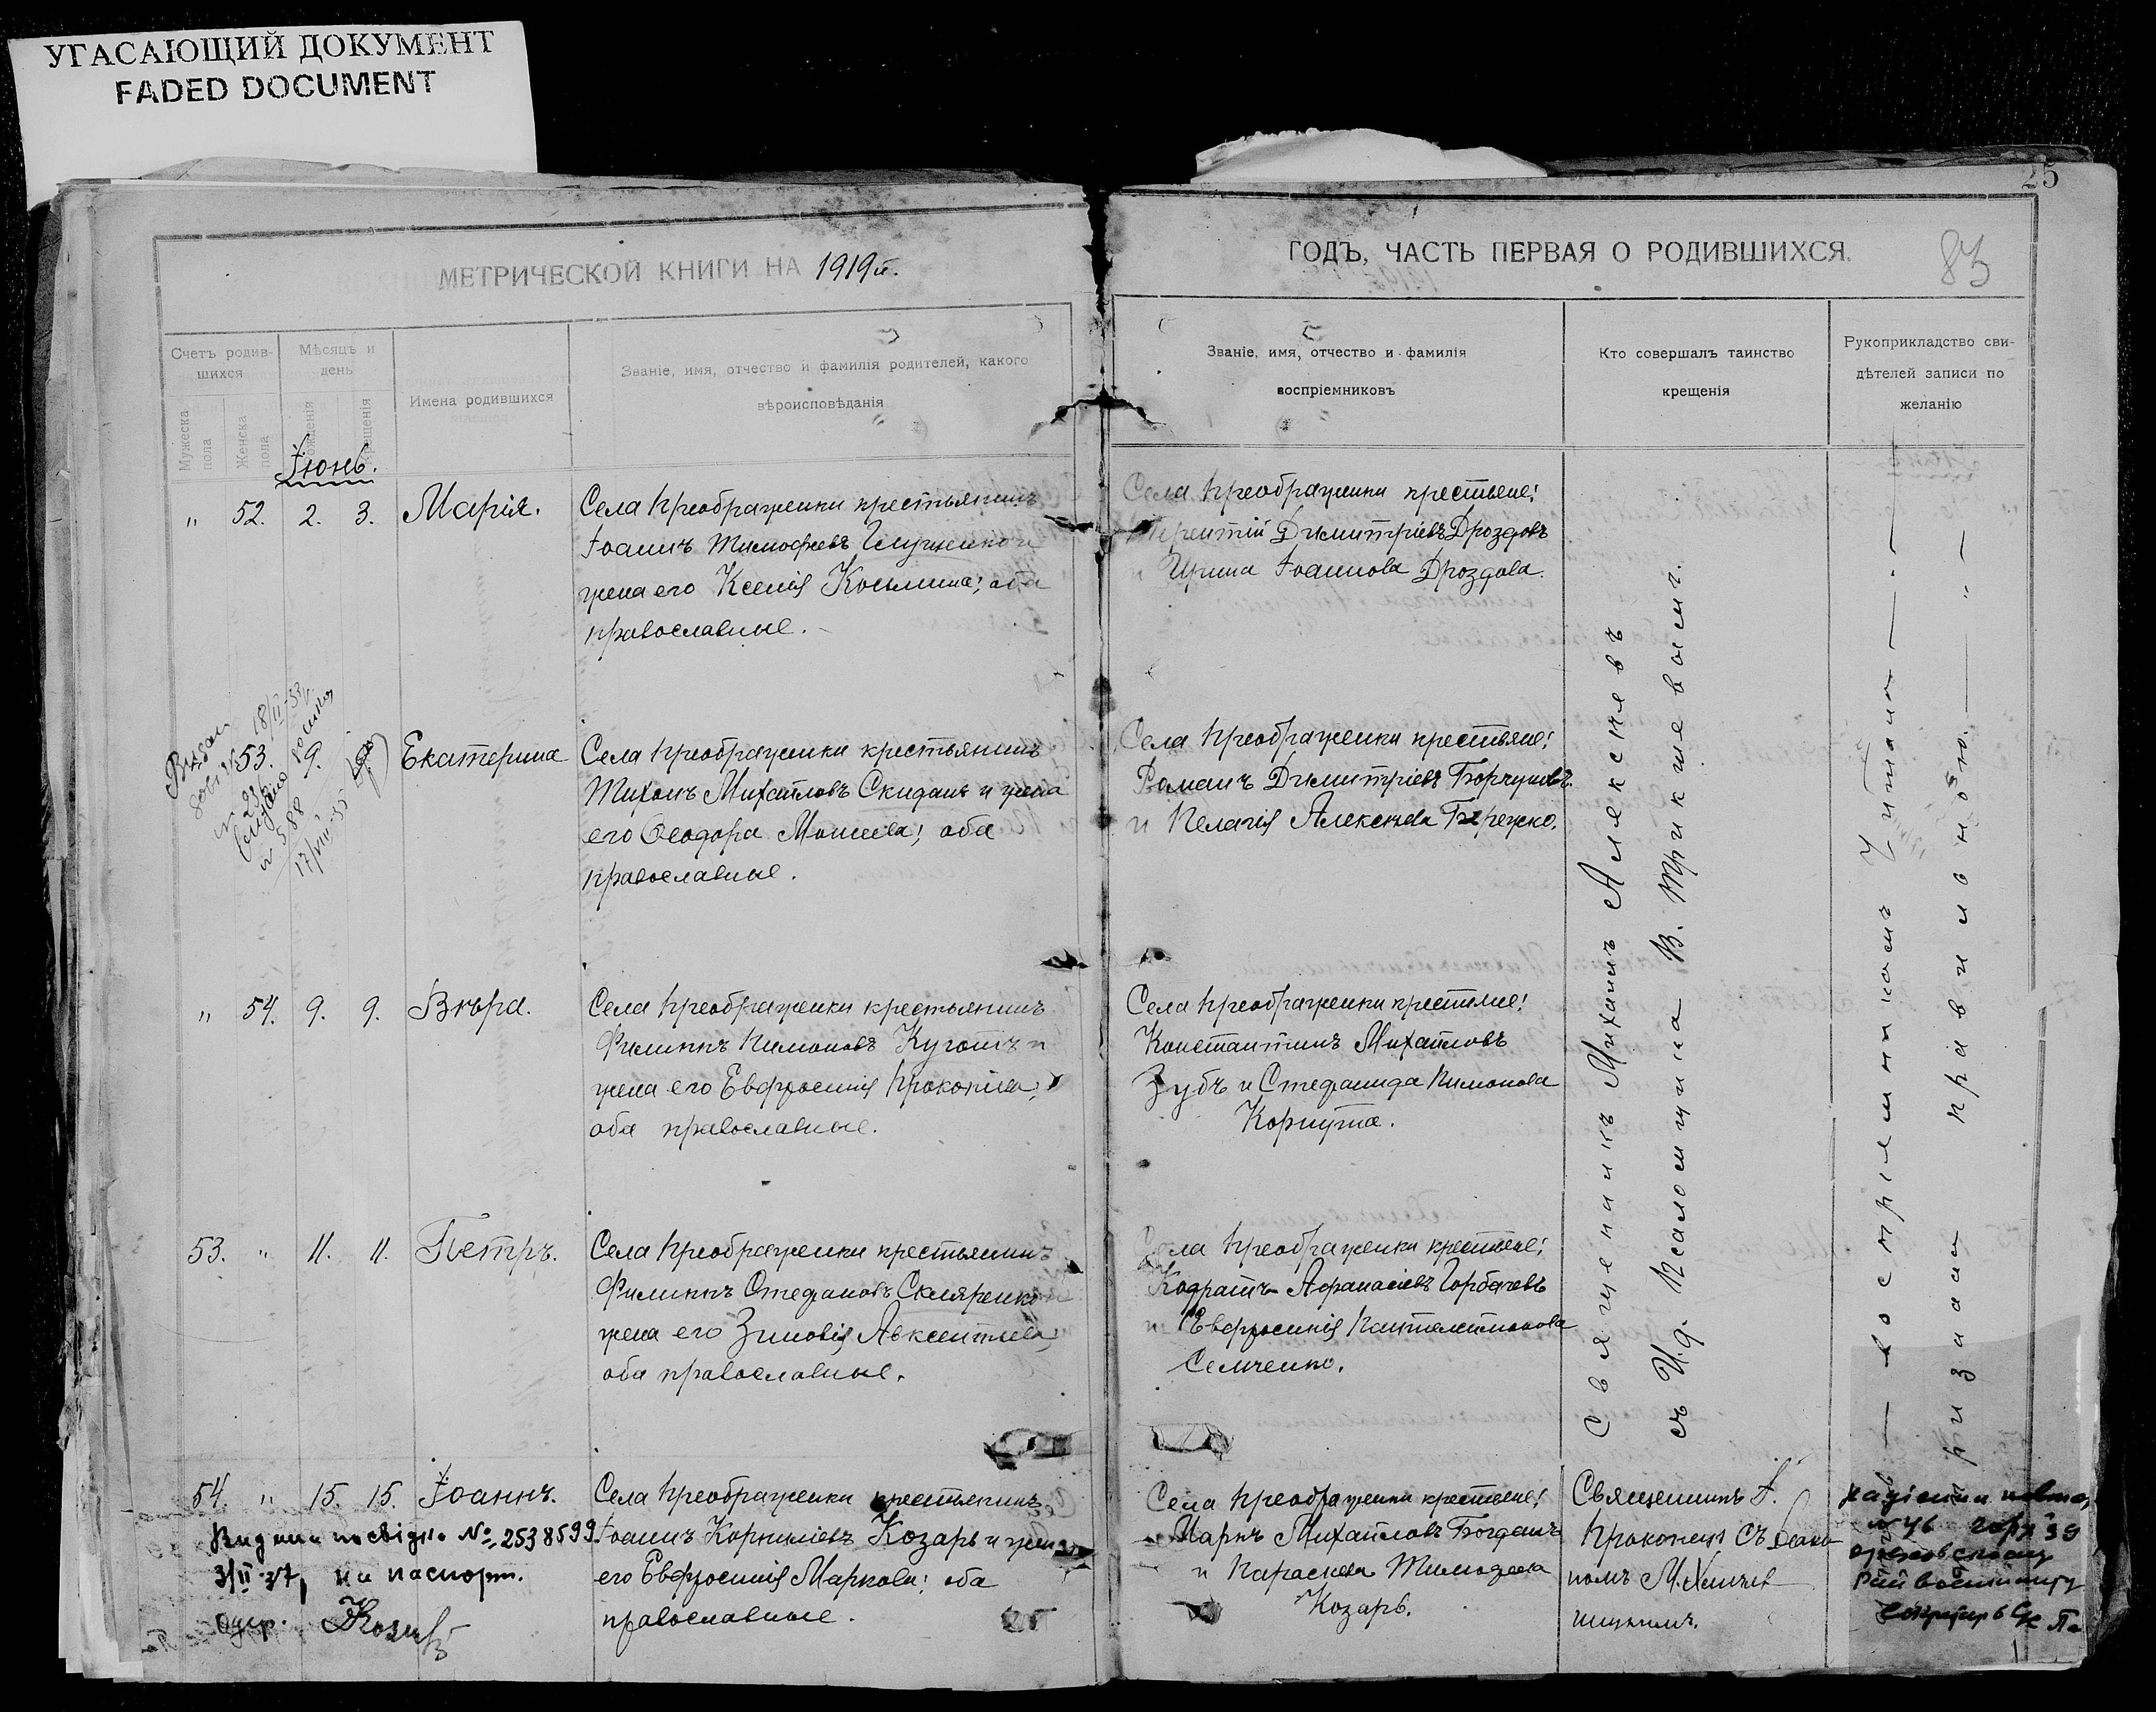 УГАСАЮЩИЙ ДОКУМЕНТ
FADED DOCUMENT
25
83
МЕТРИЧЕСКОЙ КНИГИ НА 1919й.
ГОДЪ, ЧАСТЬ ПЕРВАЯ О РОДИВШИХСЯ.
Счетъ родив-
шихся
Мужеска пола
Женска пола
Мѣсяцъ и
день
рожденія
крещенія
Имена родившихся
Званіе, имя, отчество и фамилія родителей, какого
вѣроисповѣданія
Званіе, имя, отчество и фамилія
воспріемниковъ
Кто совершалъ таинство
крещенія
Рукоприкладство сви-
дѣтелей записи по
желанію
Іюнь.
" 52. 2. 3. Марія.
Села Преображенки крестьянинъ
Іоаннъ Тимофеевъ
жена его Ксенія Косьмина; оба
православные.
Села Преображенки крестьяне:
Терентій Димитріевъ Дроздовъ
и Ирина Іоаннова Дроздова.
53. 9. Екатерина
Села Преображенки крестьянинъ
Тихонъ Михайловъ Скиданъ и жена
его Ѳеодора Моисеева; оба
православные.
Села Преображенки крестьяне:
Романъ Димитріевъ
и Пелагія Алексѣева Бережко.
" 54. 9. 9. Вѣра.
Села Преображенки крестьянинъ
Филиппъ Пимоновъ и
жена его Евфросинія Прокопіева;
оба православные.
Села Преображенки крестьяне:
Константинъ Михайловъ
Зубъ и Стефанида Пимонова
Корнута.
53. " 11. 11. Петръ.
Села Преображенки крестьянинъ
Филиппъ Стефановъ Скляренко
жена его Зиновія Авксентіева;
оба православные.
Села Преображенки крестьяне:
Кодратъ Афанасіевъ Горбачевъ
и Евфросинія Пантелеимонова
Семченко.
54. " 15. 15. Іоаннъ.
Села Преображенки крестьянинъ
Іоаннъ Корниліевъ Козарь и жена
его Евфросинія Маркова; оба
православные.
Села Преображенки крестьяне:
Маркъ Михайловъ Богданъ
и Параскева Тимофеева
Козарь.
Священникъ Михаилъ Алексѣевъ
съ И. д. Псаломщика В. Трикшевоемъ.
Священникъ І.
Прокопецъ съ
М.
воспріемникамъ читана
правильною.
признали
Видана посвідка № 2538599
3/II 37, на паспорт.
одер.